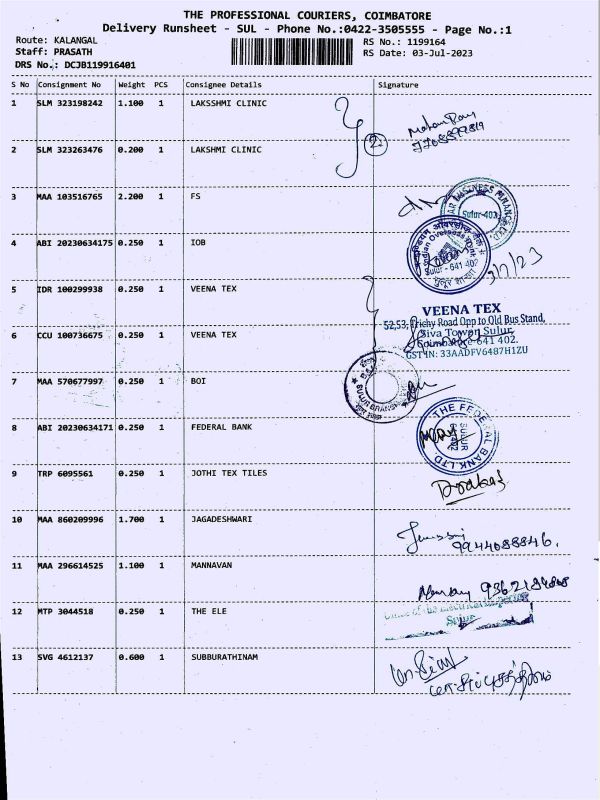 THE PROFESSIONAL COURIERS, COIMBATORE
Delivery Runsheet - SUL - Phone No.:0422-3505555 - Page No.:1
Route: KALANGAL
Staff: PRASATH
DRS No.: DCJB119916401
RS No.: 1199164
RS Date: 03-Jul-2023
S No Consignment No Weight PCS Consignee Details Signature
1 SLM 323198242 1.100 1 LAKSSHMI CLINIC
2 SLM 323263476 0.200 1 LAKSHMI CLINIC
2
3 MAA 103516765 2.200 1 FS
Sulur-402
4 ABI 20230634175 0.250 1 IOB
Indian Overseas Bank
Sulur - 641 402
5 IDR 100299938 0.250 1 VEENA TEX
VEENA TEX
52,53, Trichy Road Opp to Old Bus Stand,
Siva Towers Sulur
Coimbatore-641 402.
GST IN: 33AADFV6487H1ZU
6 CCU 100736675 0.250 1 VEENA TEX
7 MAA 570677997 0.250 1 BOI
SULUR BRANCH
8 ABI 20230634171 0.250 1 FEDERAL BANK
THE FEDERAL BANK LTD.
SULUR
9 TRP 6095561 0.250 1 JOTHI TEX TILES
10 MAA 860209996 1.700 1 JAGADESHWARI
9944088846.
11 MAA 296614525 1.100 1 MANNAVAN
12 MTP 3044518 0.250 1 THE ELE
Sulur
13 SVG 4612137 0.600 1 SUBBURATHINAM